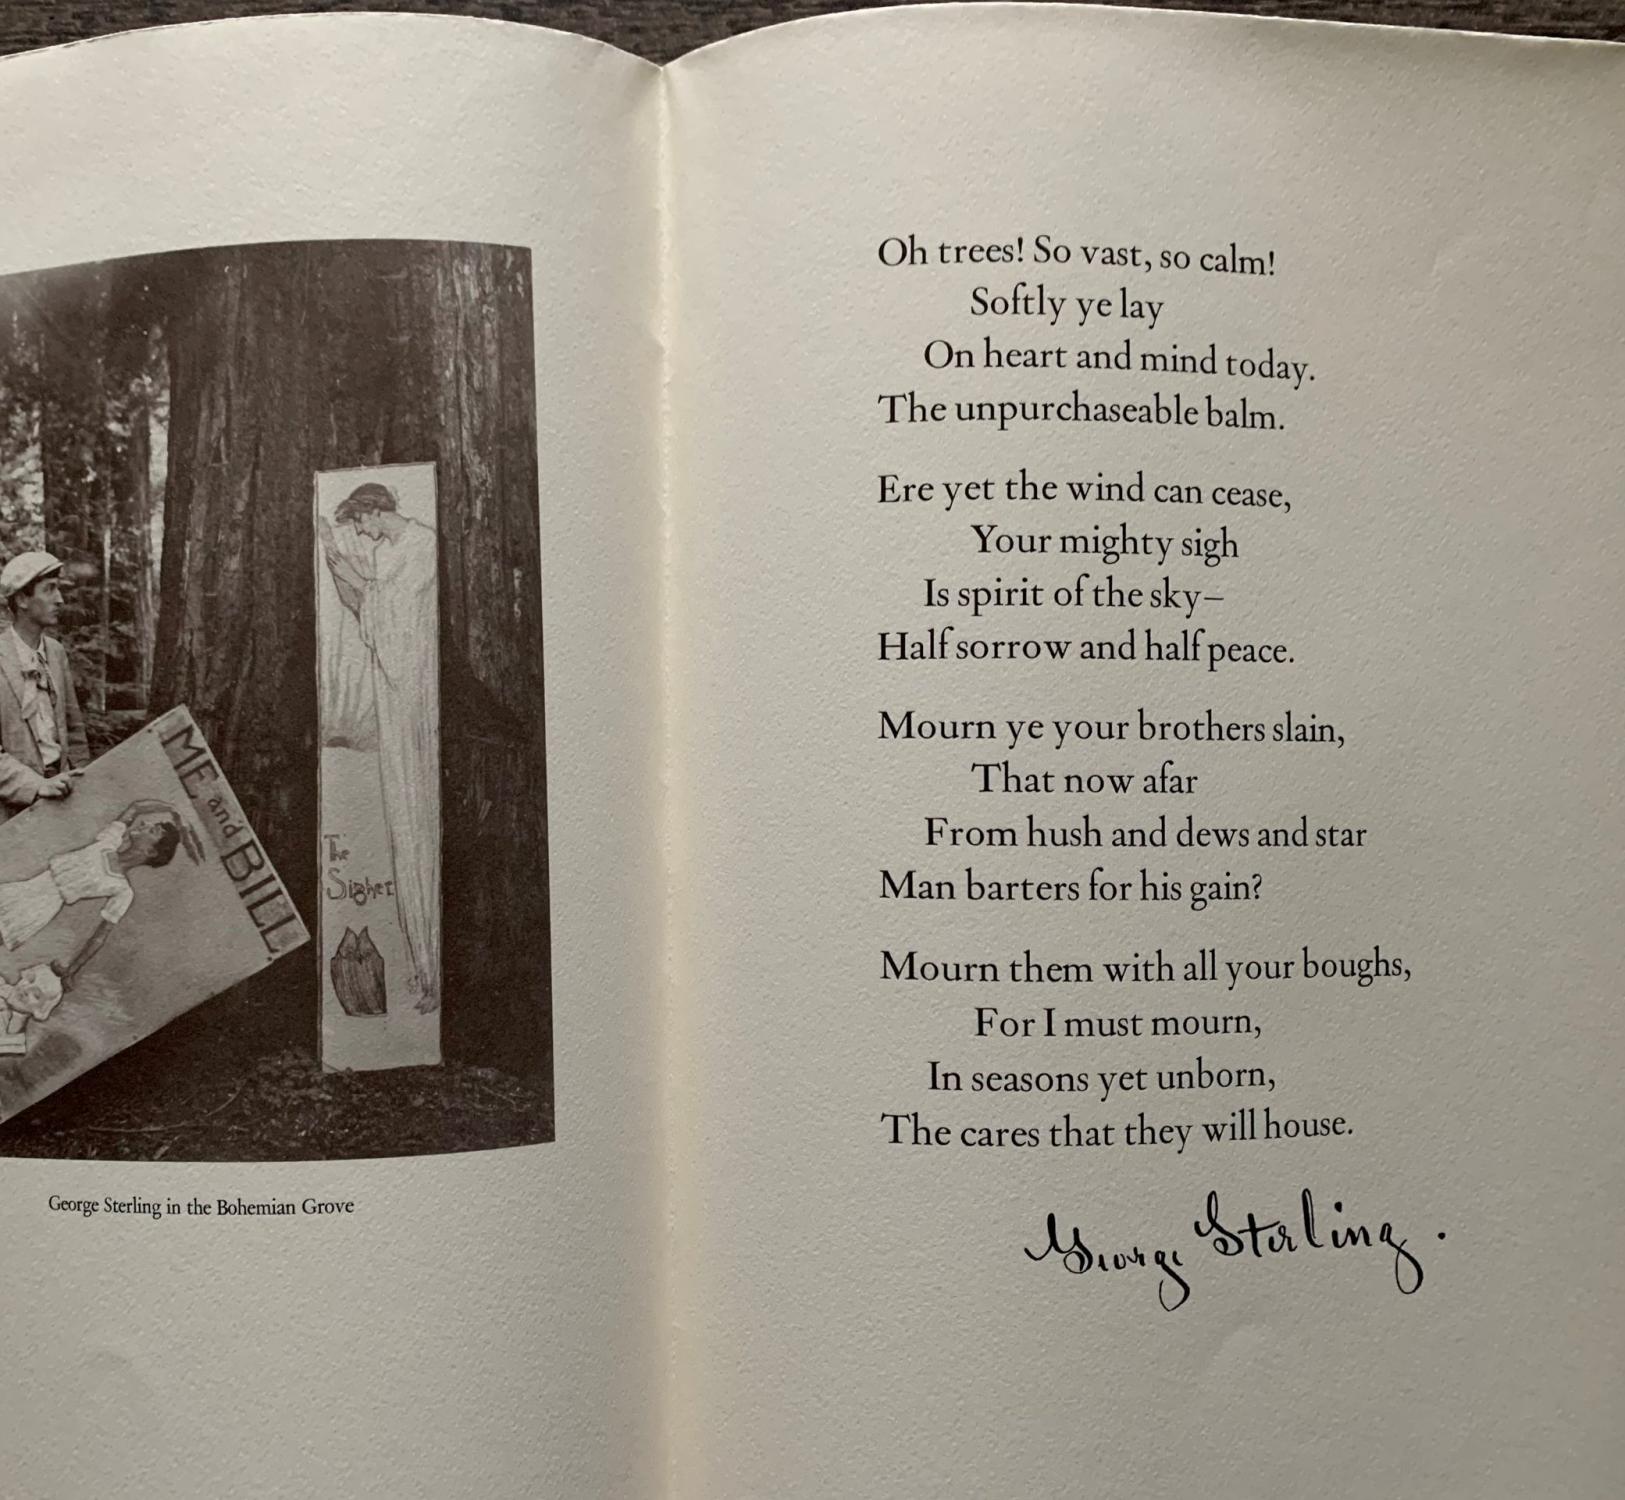 ME and BILL
The
Sigher
George Sterling in the Bohemian Grove
Oh trees! So vast, so calm!
Softly ye lay
On heart and mind today.
The unpurchaseable balm.
Ere yet the wind can cease,
Your mighty sigh
Is spirit of the sky–
Half sorrow and half peace.
Mourn ye your brothers slain,
That now afar
From hush and dews and star
Man barters for his gain?
Mourn them with all your boughs,
For I must mourn,
In seasons yet unborn,
The cares that they will house.
George Sterling.